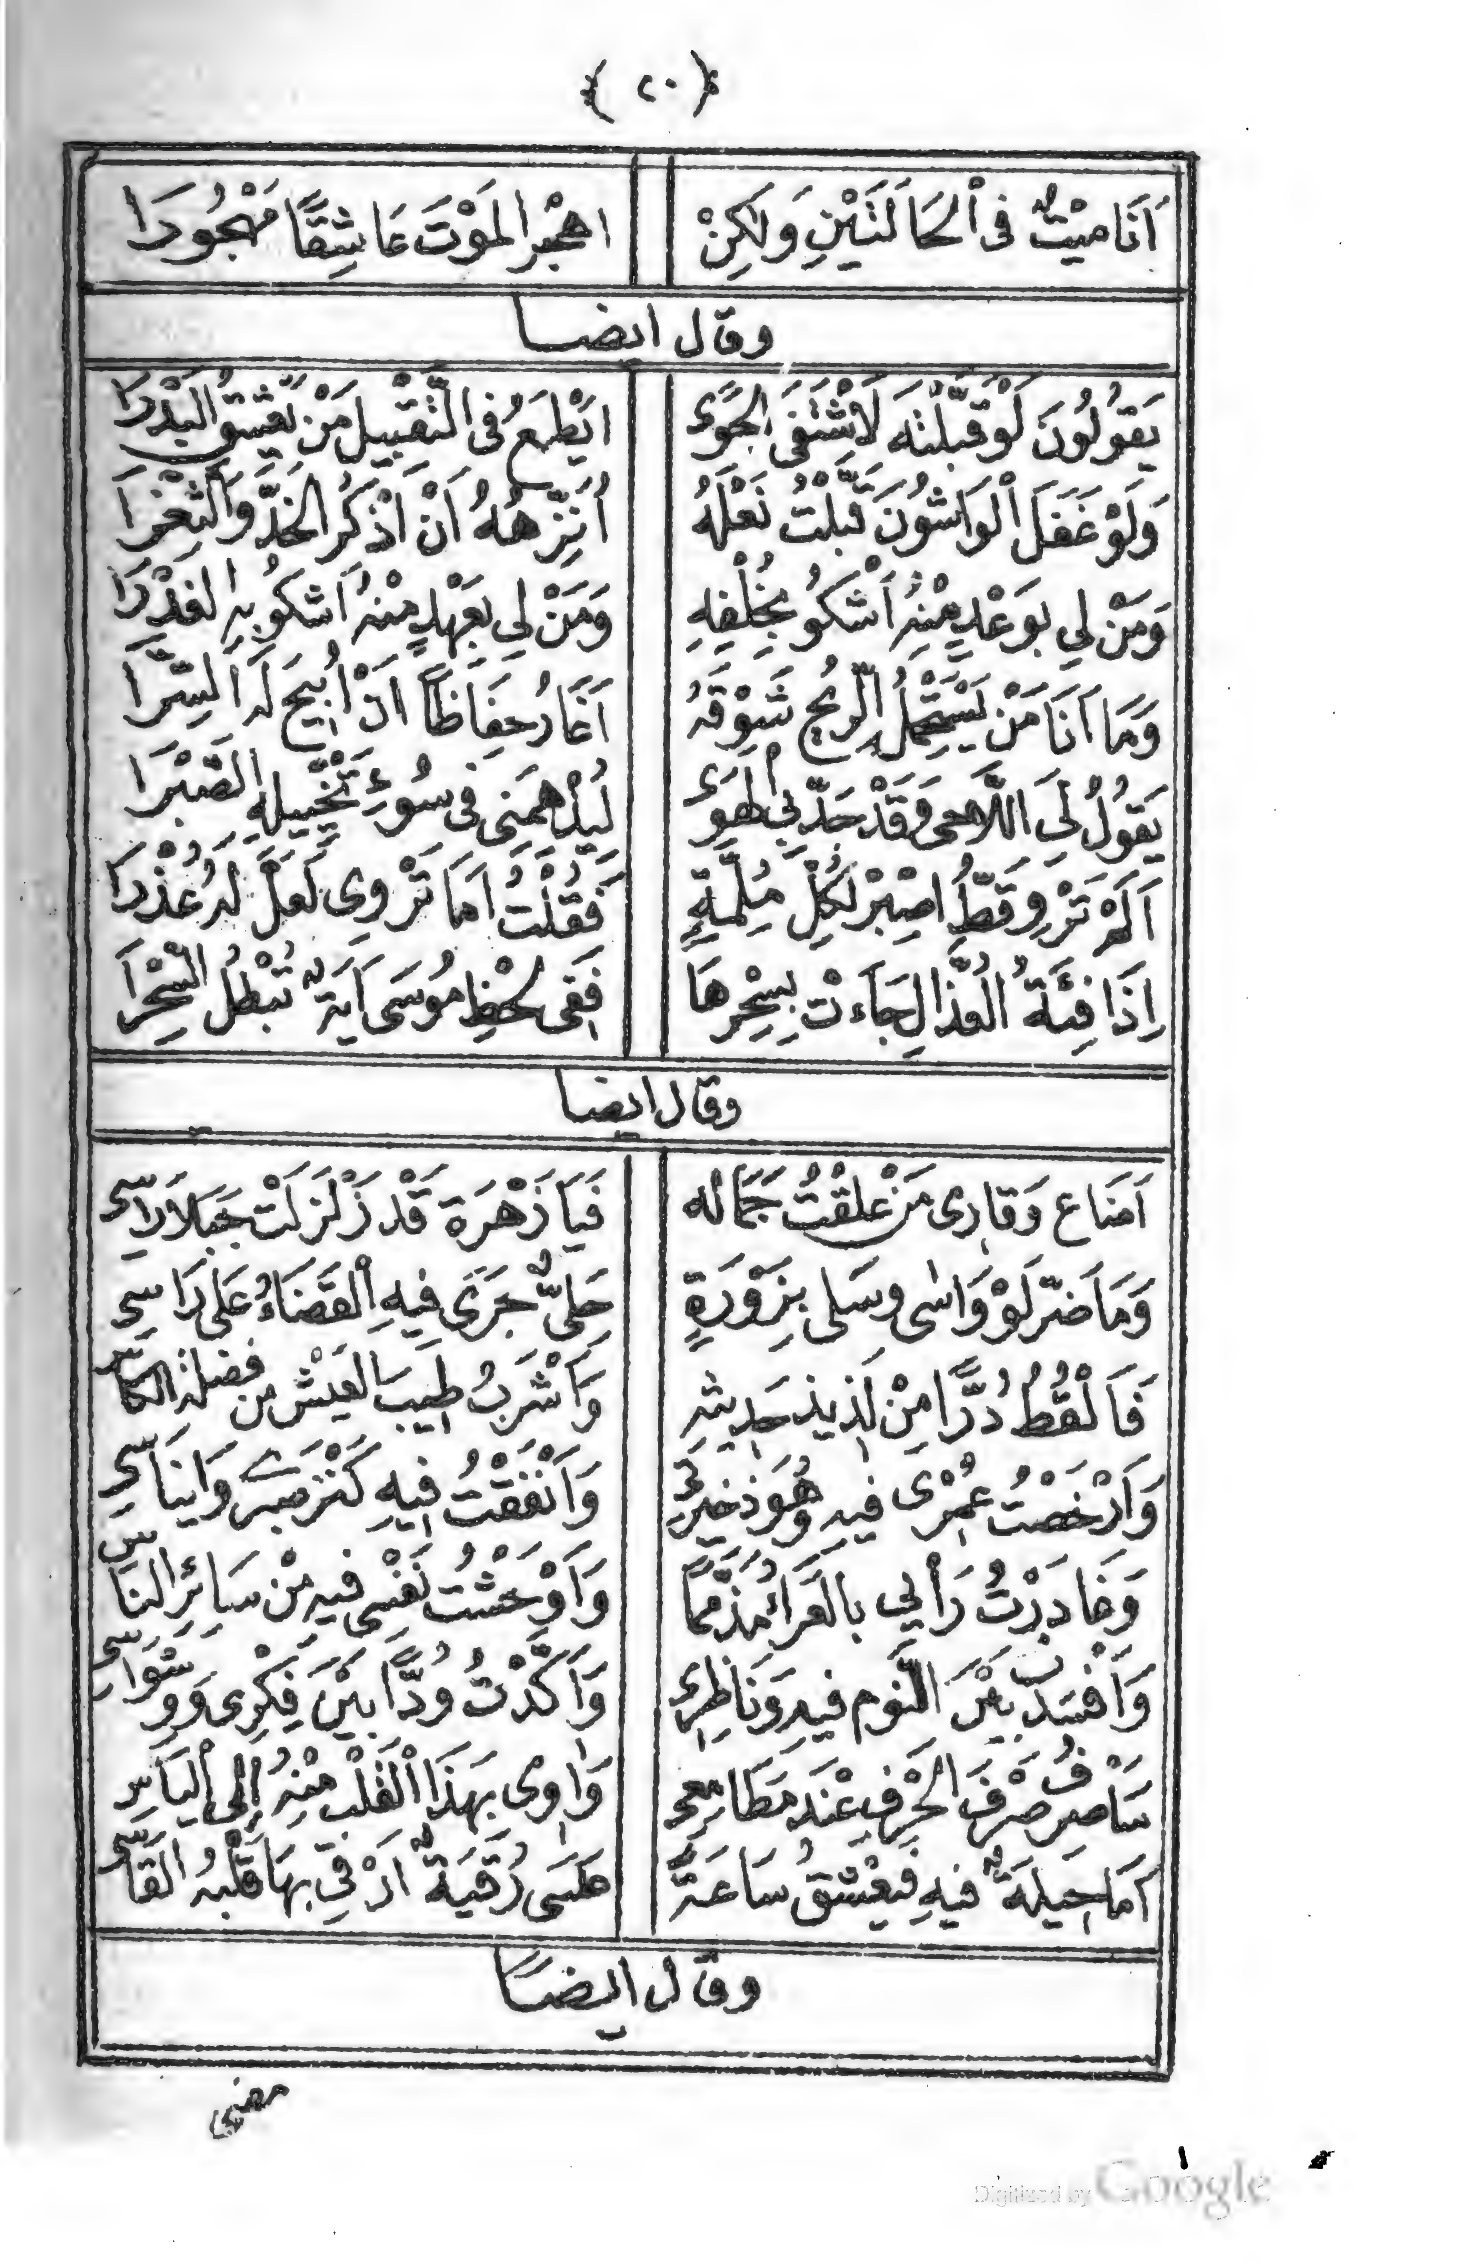 ﴿ ٢٠ ﴾
اَنَا مَيْتٌ فِى اْلحَالَتَيْنِ وَلٰكِنْ اهْجُرِ المَوْتَ عَاشِقًا مَهْجُورَا
وقال ايضا
يَقُولُونَ لَوْ قَبَّلْتَه لَاشْتَفَى الجَوَى اَيَطْمَعُ فِى التَّقْبِيلِ مَنْ يَعْشَقُ البَدْرَا
وَلَوْ غَفَلَ اْلوَاشُونَ قَبَّلْتُ نَعْلَهُ اُنَزِّهُهُ اَنْ اَذْكُرَ الخَدَّ وَالثَّغْرَا
وَمَنْ لِي بِوَعْدٍ مِنْهُ اَشْكُو بِخُلْفِهِ وَمَنْ لِي بِعَهْدٍ مِنْهُ اَشكُو بِهِ الغَدْرَا
وَمَا اَنَا مَنْ يَسْتَحْمِلُ الرِّيحَ شَوْقَهُ اَغَارُ حِفَاظًا اَنْ اُبِيحَ لَهَ السِّرَّا
يَقُولُ لِىَ اللَّاحِى وَقَدْ جَدَّ بِي اْلهَوَى لِيُذْهِمَنِى فِى سُوءِ تَخْيِيلِهِ الصَّبْرَا
اَلَمْ تَرْوِ قَطُّ اصْبِرْ لِكُلِّ مُلِمَّةٍ فَقُلْتُ اَمَا تَرْوِى لَعَلَّ لَهُ عُذْرَا
اِذَا فِئَةُ العُذَّالِ جَاءَتْ بِسِحْرِهَا فَفِى لَحْظِ مُوسَى اَيَةٌ تُبْطِلُ السِّحْرَا
وقال ايضا
اَضَاعَ وَقَارِى مَنْ عَلِقْتُ جَمَالَه فَيَا زَهْرَةً قَدْ زَلْزَلَتْ جَبَلاً رَاسِى
وَمَا ضَرّ لَوْ وَاسَى وسَلى بِزَوْرَةٍ حَلِىٌّ جَرَى فِيهِ اْلقَضَاءُ عَلى رَاسِى
فَاَلْقُطُ دُرًّا مِنْ لَذِيذِ حَدِيثِهِ وَاَشْرَبُ طِيبَ العَيْشِ مِن فضلةِ الكَاسِ
وَاَرْخَصْتُ عُمْرِى فِيهِ وَهُوَ ذَخِيرَتِى وَاَنْفَقْتُ فِيهِ كَنْزَ صَبرِى وَايِنَاسِى
وَغَادَرْتُ رَأْيِي بِالعَرَاءِ مُذَمَّمًا وَاَوْحَشْتُ نَفْسِى فِيهِ مِنْ سَائِرِ النَاسِ
وَاَفْسَدتُ بَيْنَ النَّوْمِ فِيهِ وَنَاظِرِى وَاَكَّدْتُ وُدًّا بَيْنَ فِكْرِى وَوِسْوَاسِى
سَاَصْرِفُ صَرْفَ الحَرْفِ عِنْدَ مَطَامِعِى وَاوِى بِهَذَا اْلقَلْبِ مِنْهُ اِلَى اْليَاسِ
اَمَا حِيلَةٌ فِيهِ فَيَعْشَقُ سَاعَةً عَسَى رُقْيَةٌ اَرْقِى بِهَا قَلْبَهُ القَاسِى
وقال ايضًا
مضى
Digitized by Google